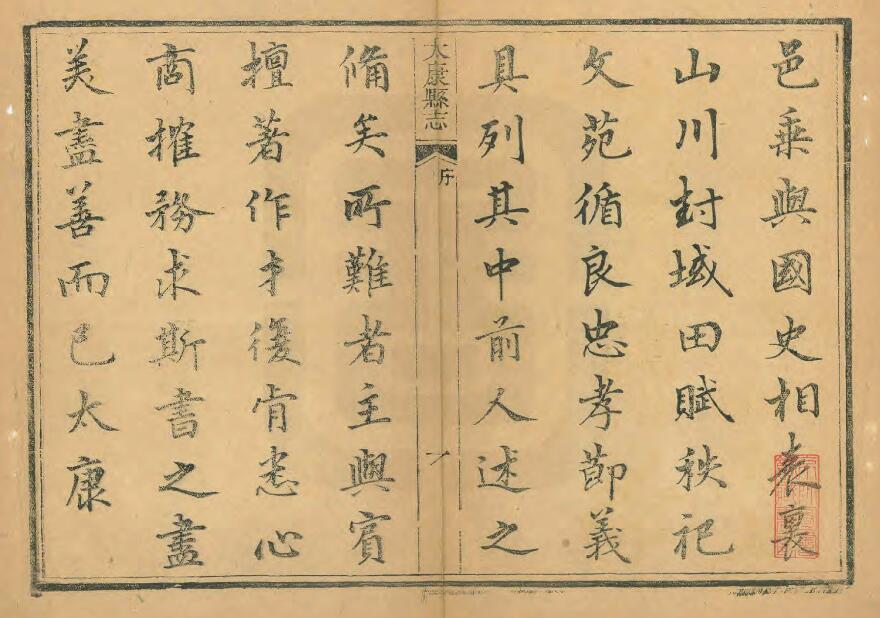 邑乗與國史相表裏
山川封域田賦秩祀
文苑循良忠孝節義
具列其中前人述之
太康縣志
序
一
備矣所難者主與賓
擅著作才後肯悉心
商搉務求斯書之盡
美盡善而已太康